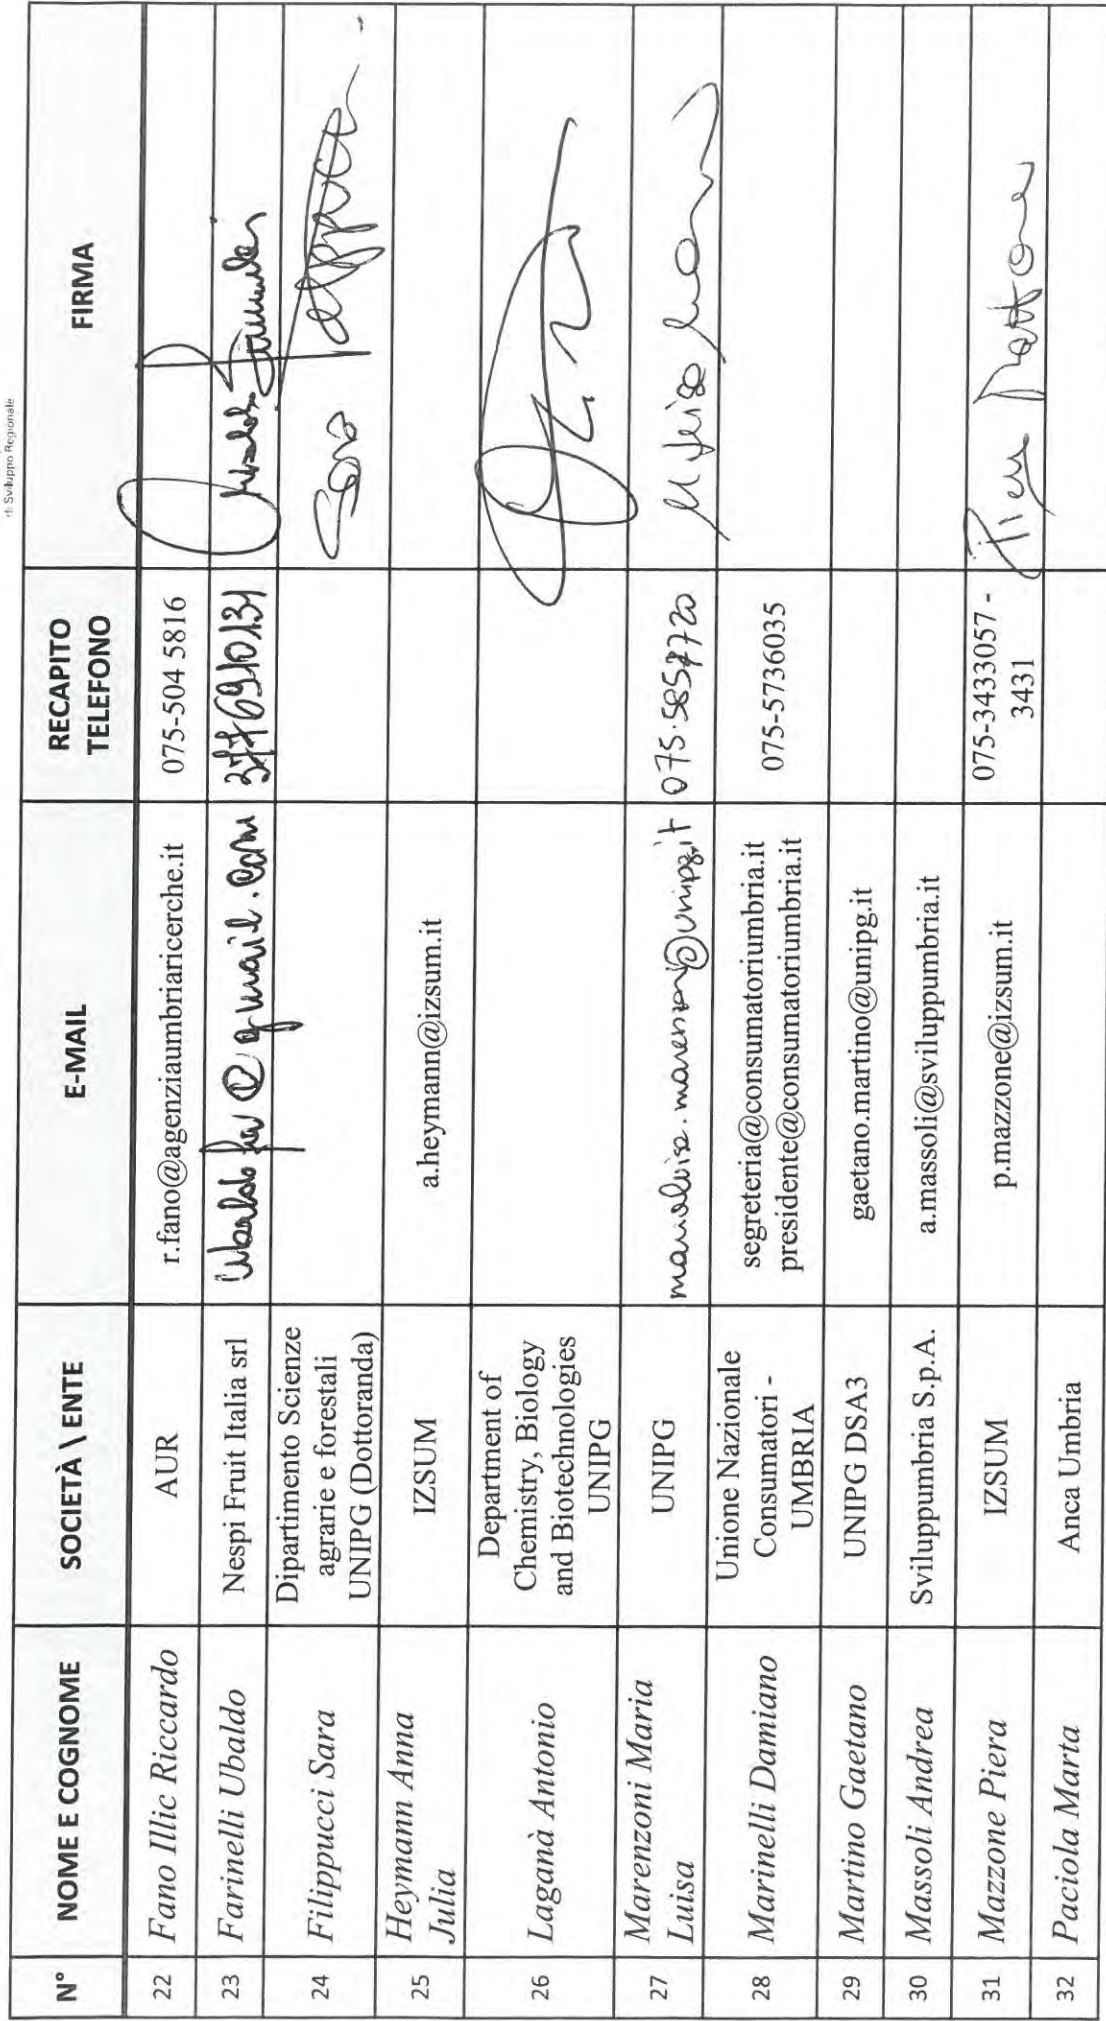 di Sviluppo Regionale
N° NOME E COGNOME SOCIETÀ \ ENTE E-MAIL RECAPITO TELEFONO FIRMA
22 Fano Illic Riccardo AUR r.fano@agenziaumbriaricerche.it 075-504 5816
23 Farinelli Ubaldo Nespi Fruit Italia srl @gmail.com 3776910131 Ubaldo Farinelli
24 Filippucci Sara Dipartimento Scienze
agrarie e forestali
UNIPG (Dottoranda)
Sara Filippucci
25 Heymann Anna
Julia
IZSUM a.heymann@izsum.it
26 Laganà Antonio Department of
Chemistry, Biology
and Biotechnologies
UNIPG
27 Marenzoni Maria
Luisa
UNIPG marialuisa.marenzoni@unipg.it 075.5857720
28 Marinelli Damiano Unione Nazionale
Consumatori -
UMBRIA
segreteria@consumatoriumbria.it
presidente@consumatoriumbria.it
075-5736035
29 Martino Gaetano UNIPG DSA3 gaetano.martino@unipg.it
30 Massoli Andrea Sviluppumbria S.p.A. a.massoli@sviluppumbria.it
31 Mazzone Piera IZSUM p.mazzone@izsum.it 075-3433057 -
3431
Piera Mazzone
32 Paciola Marta Anca Umbria